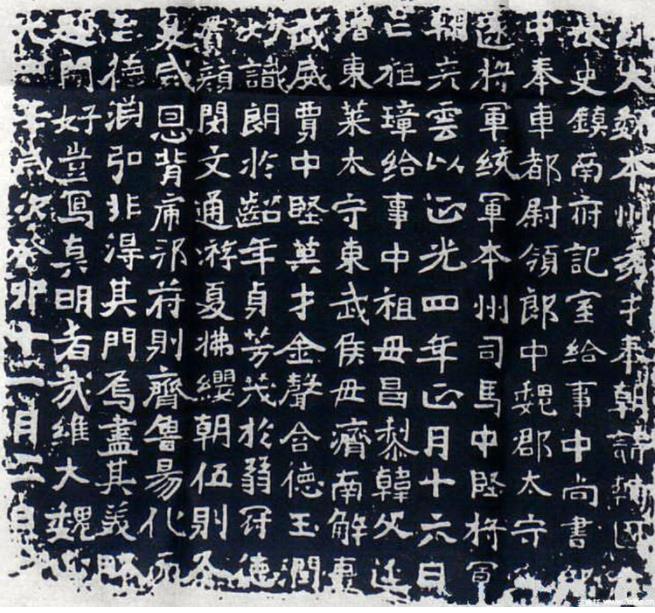 大魏本州秀才奉朝請輔國
長史鎮南府記室給事中尚書
中奉車都尉領郎中魏郡太守
遠將軍統軍本州司馬中堅將軍
彥雲以正光四年正月十六日
亡祖璋給事中祖母昌黎韓父延
增東萊太守東武侯母濟南解妻
武威賈中堅英才金聲含德玉潤
妙識朗於齠年貞芳茂於弱冠德
貫顏閔文通游夏拂纓朝伍則冬
夏咸恩背虎邪苻則齊魯易化
主德淵弘非得其門焉盡其義略
述聞好豈寫真明者哉維大魏
光四年歲次癸卯十一月二日